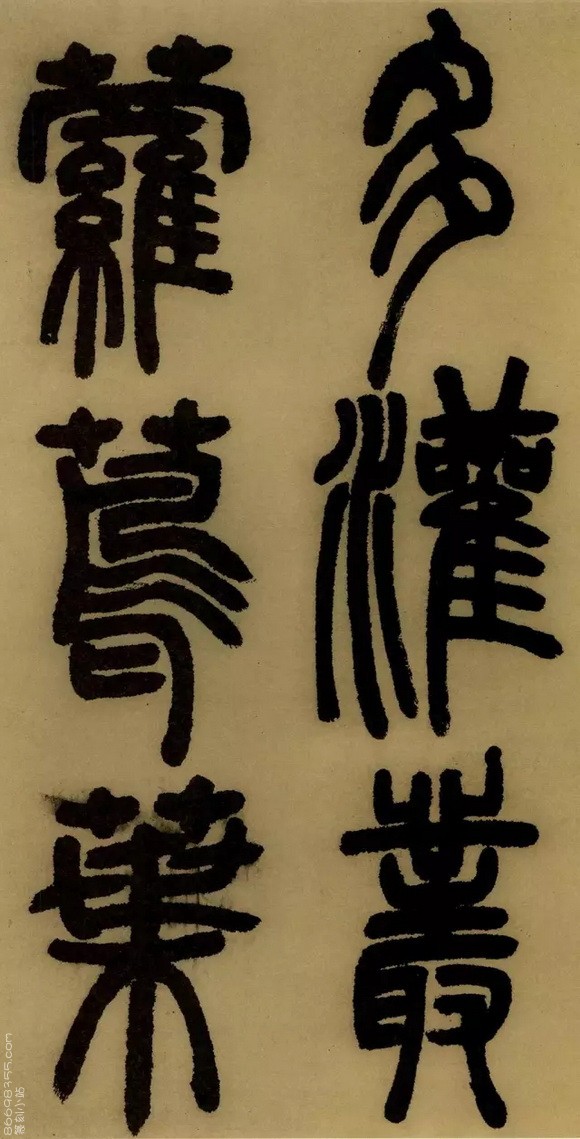 多灌叢
蘿蔦葉
86698355.com
篆刻小站